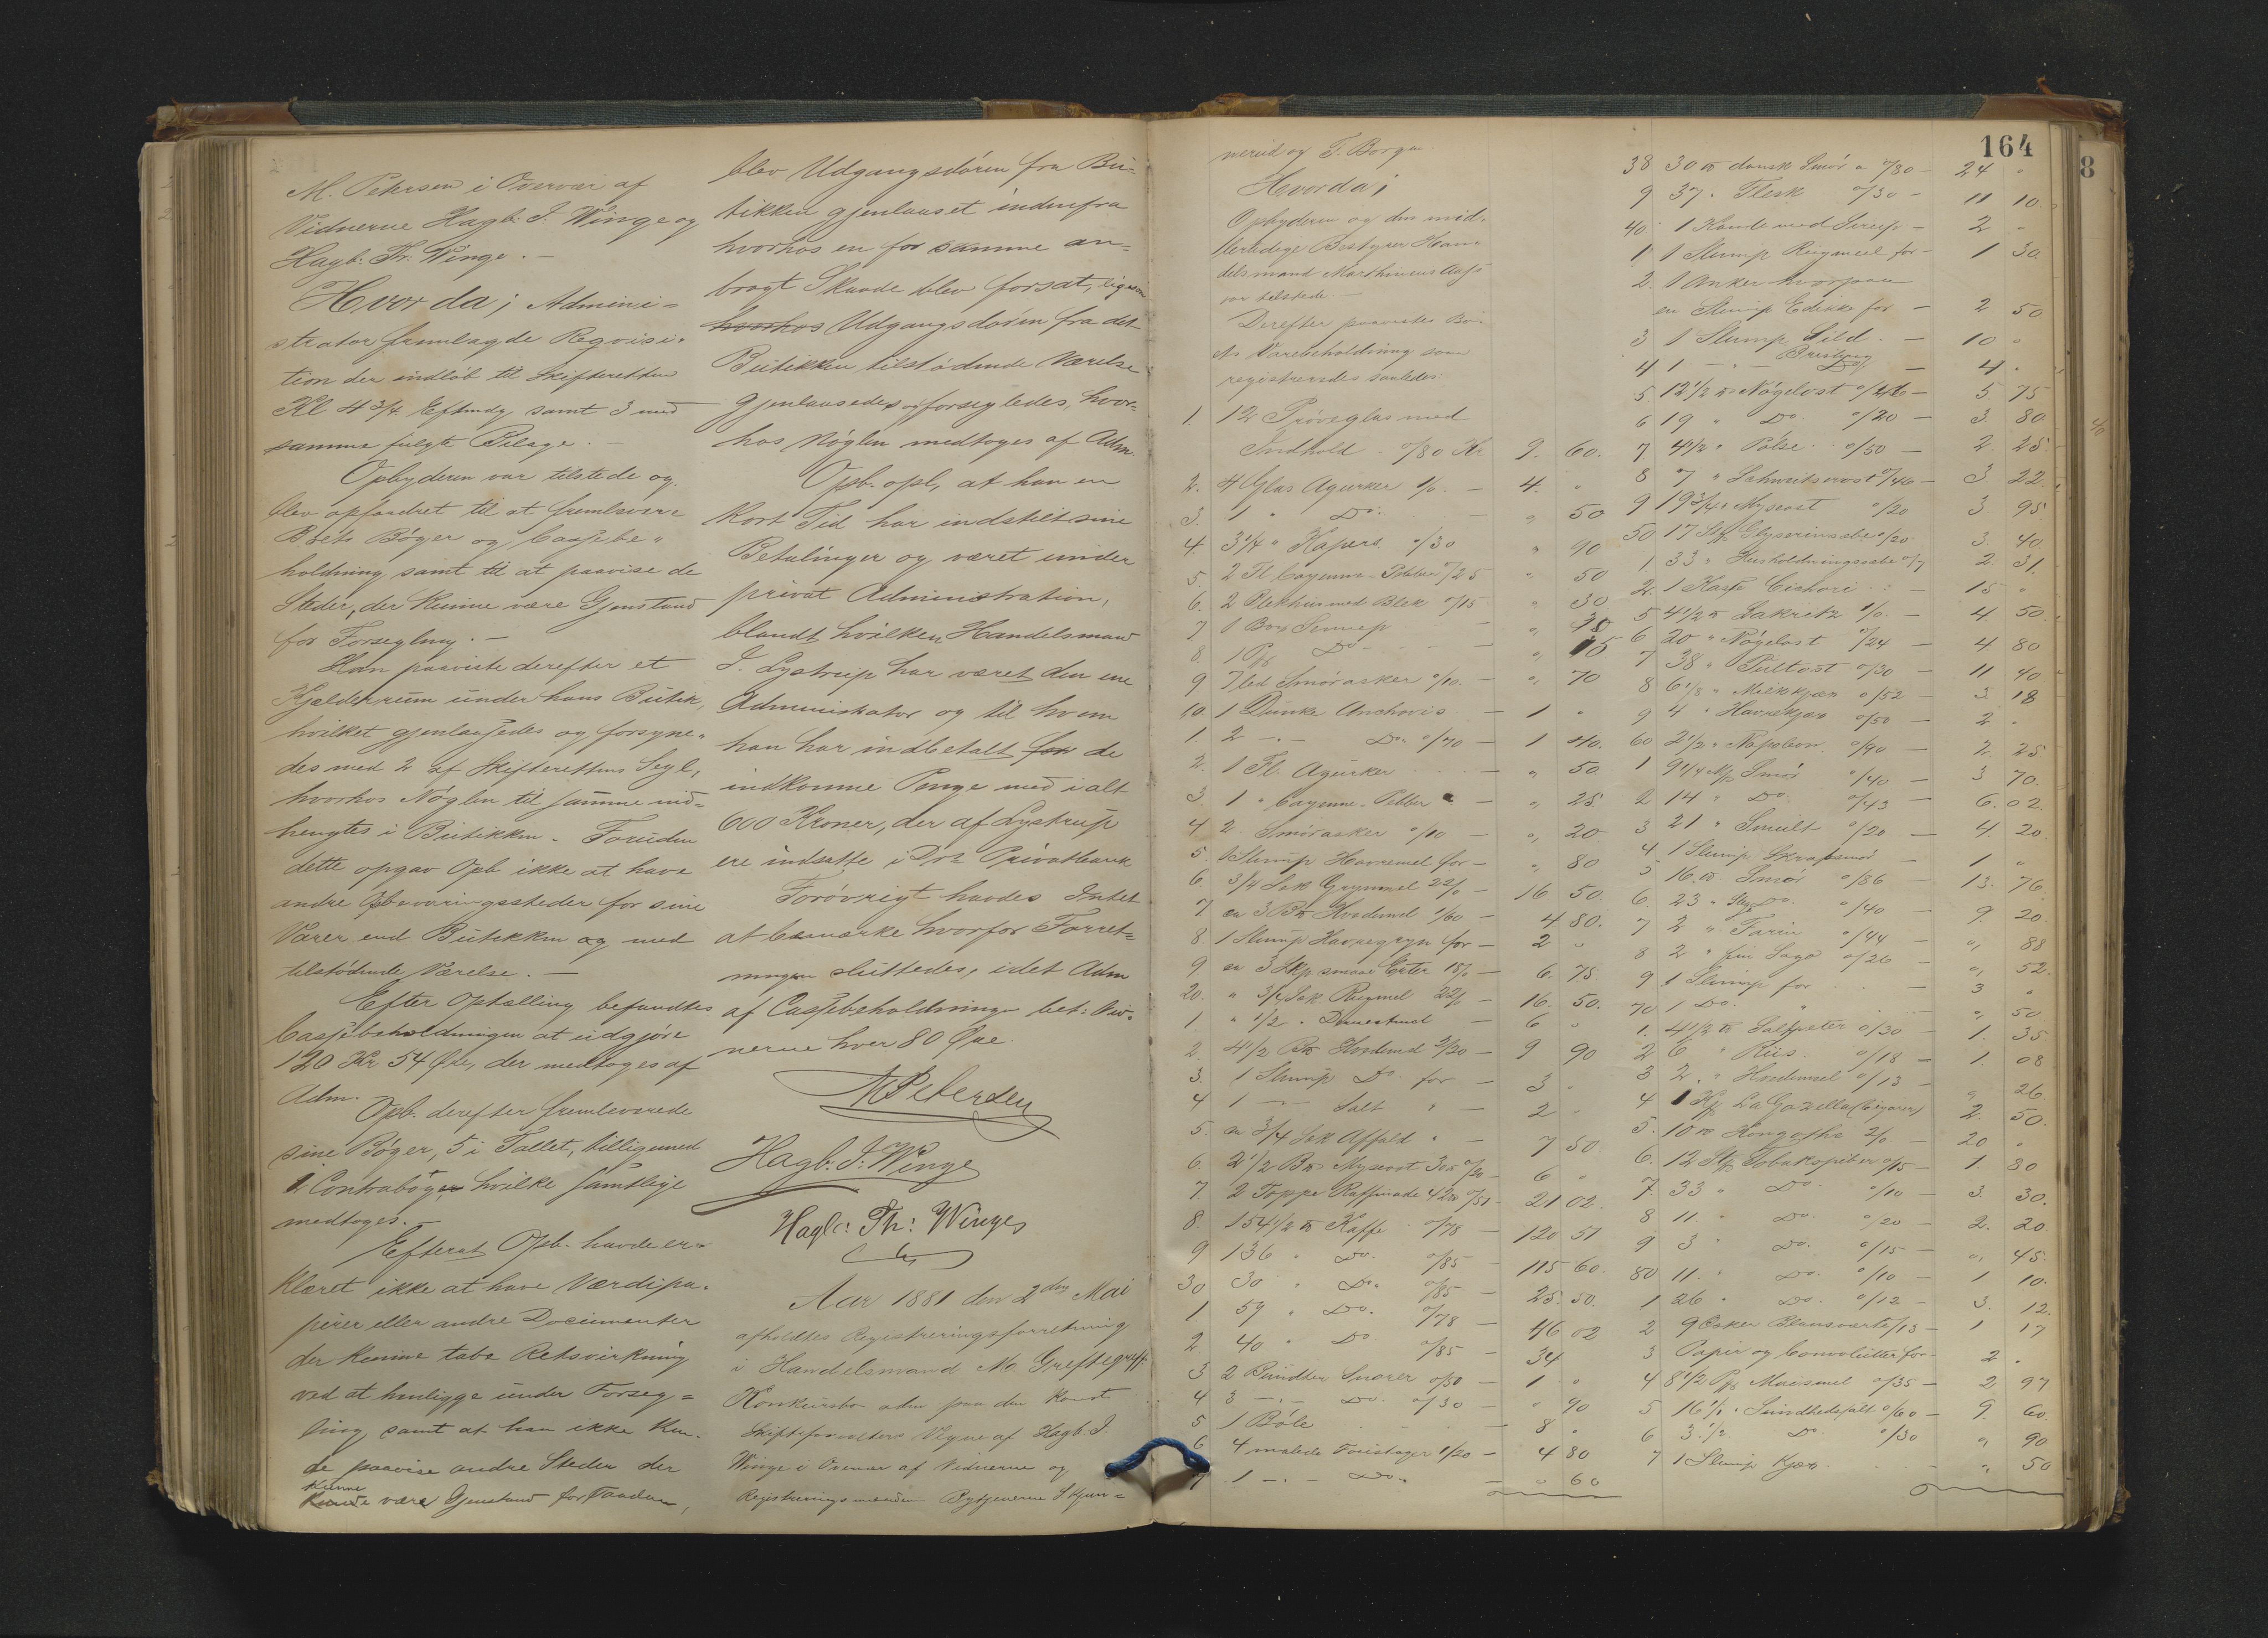 M. Petersen i Overvær af
Vidnerne Hagb. J. Winge og
Hagb. Th. Winge. —
Hvor da; Admini=
strator fremlagde Reqvisi=
tion der indløb til Skifteretten
Kl 4 3/4 Eftmdg samt 3 med
samme fulgte Bilage. —
Opbyderen var tilstede og
blev opfordret til at fremlevere
Boets Bøger og Cassebe=
holdning samt til at paavise de
Steder, der kunne være Gjenstand
for Forsegling. —
Han paaviste derefter et
Kjelderrum under hans Butik,
hvilket gjenlaasedes og forsyne=
des med 2 af Skifterettens Segl,
hvorhos Nøglen til samme ind=
hengtes i Butikken. Foruden
dette opgav Opb. ikke at have
andre Opbevaringssteder for sine
Varer end Butikken og med
tilstødende Værelse. —
Efter Optælling befandtes
Cassebeholdningen at udgjøre
120 Kr 54 Øre, der medtoges af
Adm.
Opb. derefter fremleverede
sine Bøger, 5 i Tallet, tilligemed
2 Contrabøger hvilke samtlige
medtoges. —
Efterat Opb. havde er=
klæret ikke at have Værdipa=
pirer eller andre Documenter
der kunne tabe Retsvirkning
ved at henligge under Forseg=
ling samt at han ikke kun=
de paavise andre Steder der
kunne
kunde være Gjenstand for saadan,
blev Udgangsdøren fra Bu=
tikken gjenlaaset indenfra
hvorhos en for samme an=
bragt Skaade blev forsat, ligesom
hvorhos Udgangsdøren fra det
Butikken tilstødende Værelse
gjenlaasedes og forsegledes, hvor=
hos Nøglen medtoges af Adm.
Opb. opl, at han en
kort Tid har indstilt sine
Betalinger og været under
privat Administration,
blandt hvilken Handelsmand
J. Lystrup har været den ene
Administrator og til hvem
han har indbetalt for de
indkomne Penge med i alt
600 Kroner, der af Lystrup
ere indsatte i Privatbank
Forøvrigt havdes Intet
at bemærke hvorfor Forret=
ningen sluttedes, idet Adm
af Cassebeholdningen bet. Vid=
nerne hver 80 Øre.
M Petersen
Hagb. J. Winge
Hagb: Th: Winge
Aar 1881 den 2den Mai
afholdtes Registreringsforretning
i Handelsmand M. Greftegreff
Konkursbo adm paa den konst
Skifteforvalters Vegne af Hagb. J.
Winge i Overvær af Vidnerne og
Registreringsmændene
164
nerud og T. Borgen
Hvorda;
Opbyderen og den mid=
lertidige Bestyrer Han=
delsmand
var tilstede. —
Derefter paavistes Bo=
ets Varebeholdning som
registreredes saaledes:
1. 12 Prøveglas med
Indhold 0/80 Kr 9. 60.
2. 4 Glas Agurker 1/0. — 4. "
3. 1 " Do. — " 50
4 3 1/4 " Kapers 0/30 " 90
5. 2 Fl. Cayenne-Pebber 0/25 " 50
6. 2 Blækhuse med Blæk 0/15 " 30
7 1 Box Sennep
8. 1 Do — " 15
9 7 Smøræsker 0/10. — " 70
10. 1 Dunke Anchovis — 1 "
1. 2 -"- Do. 0/70 — 1 40.
2. 1 Fl. Agurker — " 50
3. 1 " Cayenne-Pebber — " 25
4 2 Smøræsker 0/10 — " 20
5. 1 Slump Havremel for — " 80
6. 3/4 Sæk Grynmel 22/0 — 16 50.
7 ca 3 Hvedemel 1/60 — 4 80.
8. 1 Slump Havregryn for — 2 "
9. ca 3 Skp smaae Erter — 6. 75
20. " 3/4 Sæk Rugmel 22/0 — 16. 50.
1. " 1/2 " — 6 "
2. 4 1/2 Hvedemel 2/20 — 9 90
3. 1 Slump Do. for — 3 "
4 1 -"- Salt " — 2 "
5. ca 3/4 Sæk Affald " — 7 50
6. 2 1/2 Myseost 0/20 — 6 "
7. 2 Toppe Raffinade 42 0/51 — 21 02.
8. 154 1/2 Kaffe 0/78 — 120 51
9 136 " Do. 0/85 — 115 60.
30 30 " Do. 0/85 — 25. 50.
1 59 " Do. 0/78 — 46 02
2. 40 " Do. 0/85 — 34
3 2 Bundter Snører 0/50 — 1 "
4 3 -"- Do. 0/30 — " 90
5 1 Bøle — 8 "
6 4 malede 1/20 — 4 80
7 1 -"- Do. — " 60
38 30 dansk Smør a 0/80 — 24 "
9 37 " Flesk 0/30 — 11 10.
40 1 Kande med Sirup — 2 "
1 1 Slump Rugmeel for — 1 30
2. 1 Anker hvorpaa
en Slump Edikke for — 2 50
3 1 Slump Sild. — 10 "
4 1 -"- Brisling — 4 "
5. 12 1/2 Nøgelost 0/46 — 5. 75
6 19 " Do. 0/20 — 3. 80
7 4 1/2 " Pølse 0/50 — 2. 25.
8 7 " Schweitserost 0/46 — 3. 22.
9 19 3/4 " Myseost 0/20 3 95
50 17 Stk Glyserinsæbe 0/20 3. 40
1. 33 " Husholdningssæbe 0/7 2. 31.
2. 1 Kasse Cichori 15 "
5 4 1/2 Lakritz 1/0. — 4 50.
6 20 " Nøgelost 0/24 — 4 80
7 38 " Pultost 0/30 — 11 40
8 6 1/8 " 0/52 — 3 18
9 4 " 0/50 — 2 "
60 2 1/2 " Napoleon 0/90 — 2. 25
1 9 1/4 Smør 0/40 — 3 70.
2 14 " Do. 0/43 — 6. 02.
3 21 " Smult 0/20 — 4. 20
4 1 Slump Skrabsmør — 1 "
5 16 Smør 0/86 — 13. 76
6. 23 " Do. 0/40 — 9 20
7 2 " Farin 0/44 — " 88
8 2 " fin Sago 0/26 — " 52.
9 1 Slump for 3 "
70 1 Do. " " 50
1. 4 1/2 Saltpeter 0/30 — 1. 35
2 6 " Riis 0/18 — 1. 08
3 2 " Hvedemel 0/13 — " 26
4 1 La Gazella (Cigarer) 2. 50.
5. 10 Kongothe 2/0 — 20 "
6. 12 Stk Tobakspiber 0/15 — 1. 80
7. 33 " Do. 0/10 — 3. 30.
8 11 " Do. 0/20 — 2. 20
9 3 " Do. 0/15 — " 45.
80 11 " Do. 0/10 — 1 10.
1 26 " Do. 0/12 — 3. 12.
2 9 Esker Blanksværte 0/13 — 1 17
3 Papir og Convolutter for — 2 "
4 8 1/2 Maismel 0/35 — 2 97
5 16 1/1 " Sundhedssalt 0/60 — 9. 60.
6 3 1/2 Do. 0/30 " 90
7 1 Slump — " 50
8